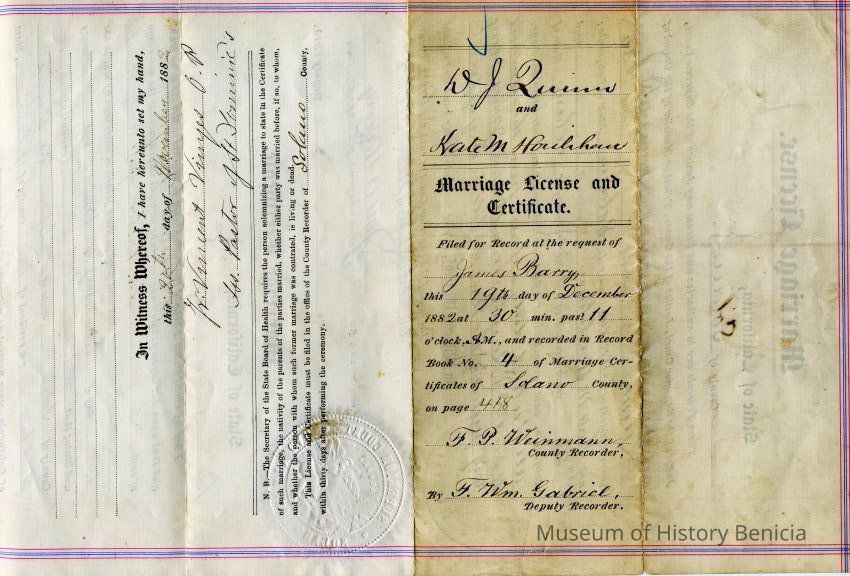 In Witness Whereof, I have hereunto set my hand,
this day of 1882
Fr. Vincent Vinyes O. P.
Pastor of St Dominic's
N. B.—The Secretary of the State Board of Health requires the person solemnizing a marriage to state in the Certificate
of such marriage, the nativity of the parents of the parties married, whether either party was married before, if so, to whom,
and whether the person with whom such former marriage was contrated, is living or dead.
This License and Certificate must be filed in the office of the County Recorder of Solano County,
within thirty days after performing the ceremony.
D J Quinn
and
Kate M Houlihan
Marriage License and
Certificate.
Filed for Record at the request of
James Barry
this 19th day of December
1882 at 30 min. past 11
o'clock, A.M., and recorded in Record
Book No. 4 of Marriage Cer-
tificates of Solano County,
on page 418
F. P. Weinmann,
County Recorder,
By F. Wm. Gabriel,
Deputy Recorder.
Marriage License.
State of California
Museum of History Benicia